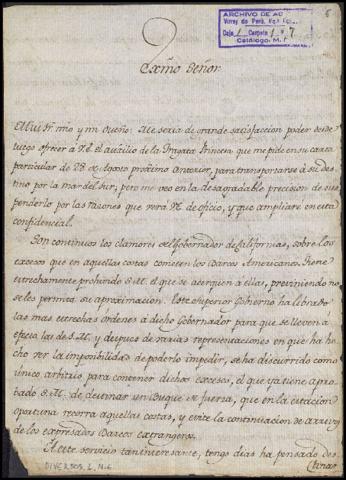 6
ARCHIVO DE
Virrey de Perú,
Caja 1 Carpeta 1 nº 7
Catálogo, M.
Exmo Señor
Mui Sr. mio y mi Dueño: Me seria de grande satisfaccion poder desde
luego ofrecer á VE. el auxilio de la Fragata Princesa que me pide en su carta
particular de 28 de Agosto proximo anterior, para transportarse á su des
tino por la mar del sur; pero me veo en la desagradable precision de sus
penderlo por las razones que verá VE. de oficio, y que ampliaré en esta
confidencial.
Son continuos los clamores del Gobernador de Californias, sobre los
excesos que en aquellas costas cometen los Barcos Americanos. Tiene
estrechamente prohivido S.M. el que se acerquen á ellas, previniendo no
se les permita su aproximacion. Este Superior Gobierno há librado
las mas estrechas ordenes á dicho Gobernador para que se lleven á
efecto las de S.M. y despues de varias representaciones en que ha
hecho ver la imposibilidad de poderlo impedir, se ha discurrido como
unico arbitrio para contener dichos excesos, el que ya tiene apro
bado S.M. de destinar un Buque de fuerza, que en la estacion
oportuna recorra aquellas costas, y evite la continuacion de arrivos
de los expresados Barcos extrangeros.
A este servicio tan interesante, tengo dias ha pensado des
tinar
DIVERSOS, 2, N.6